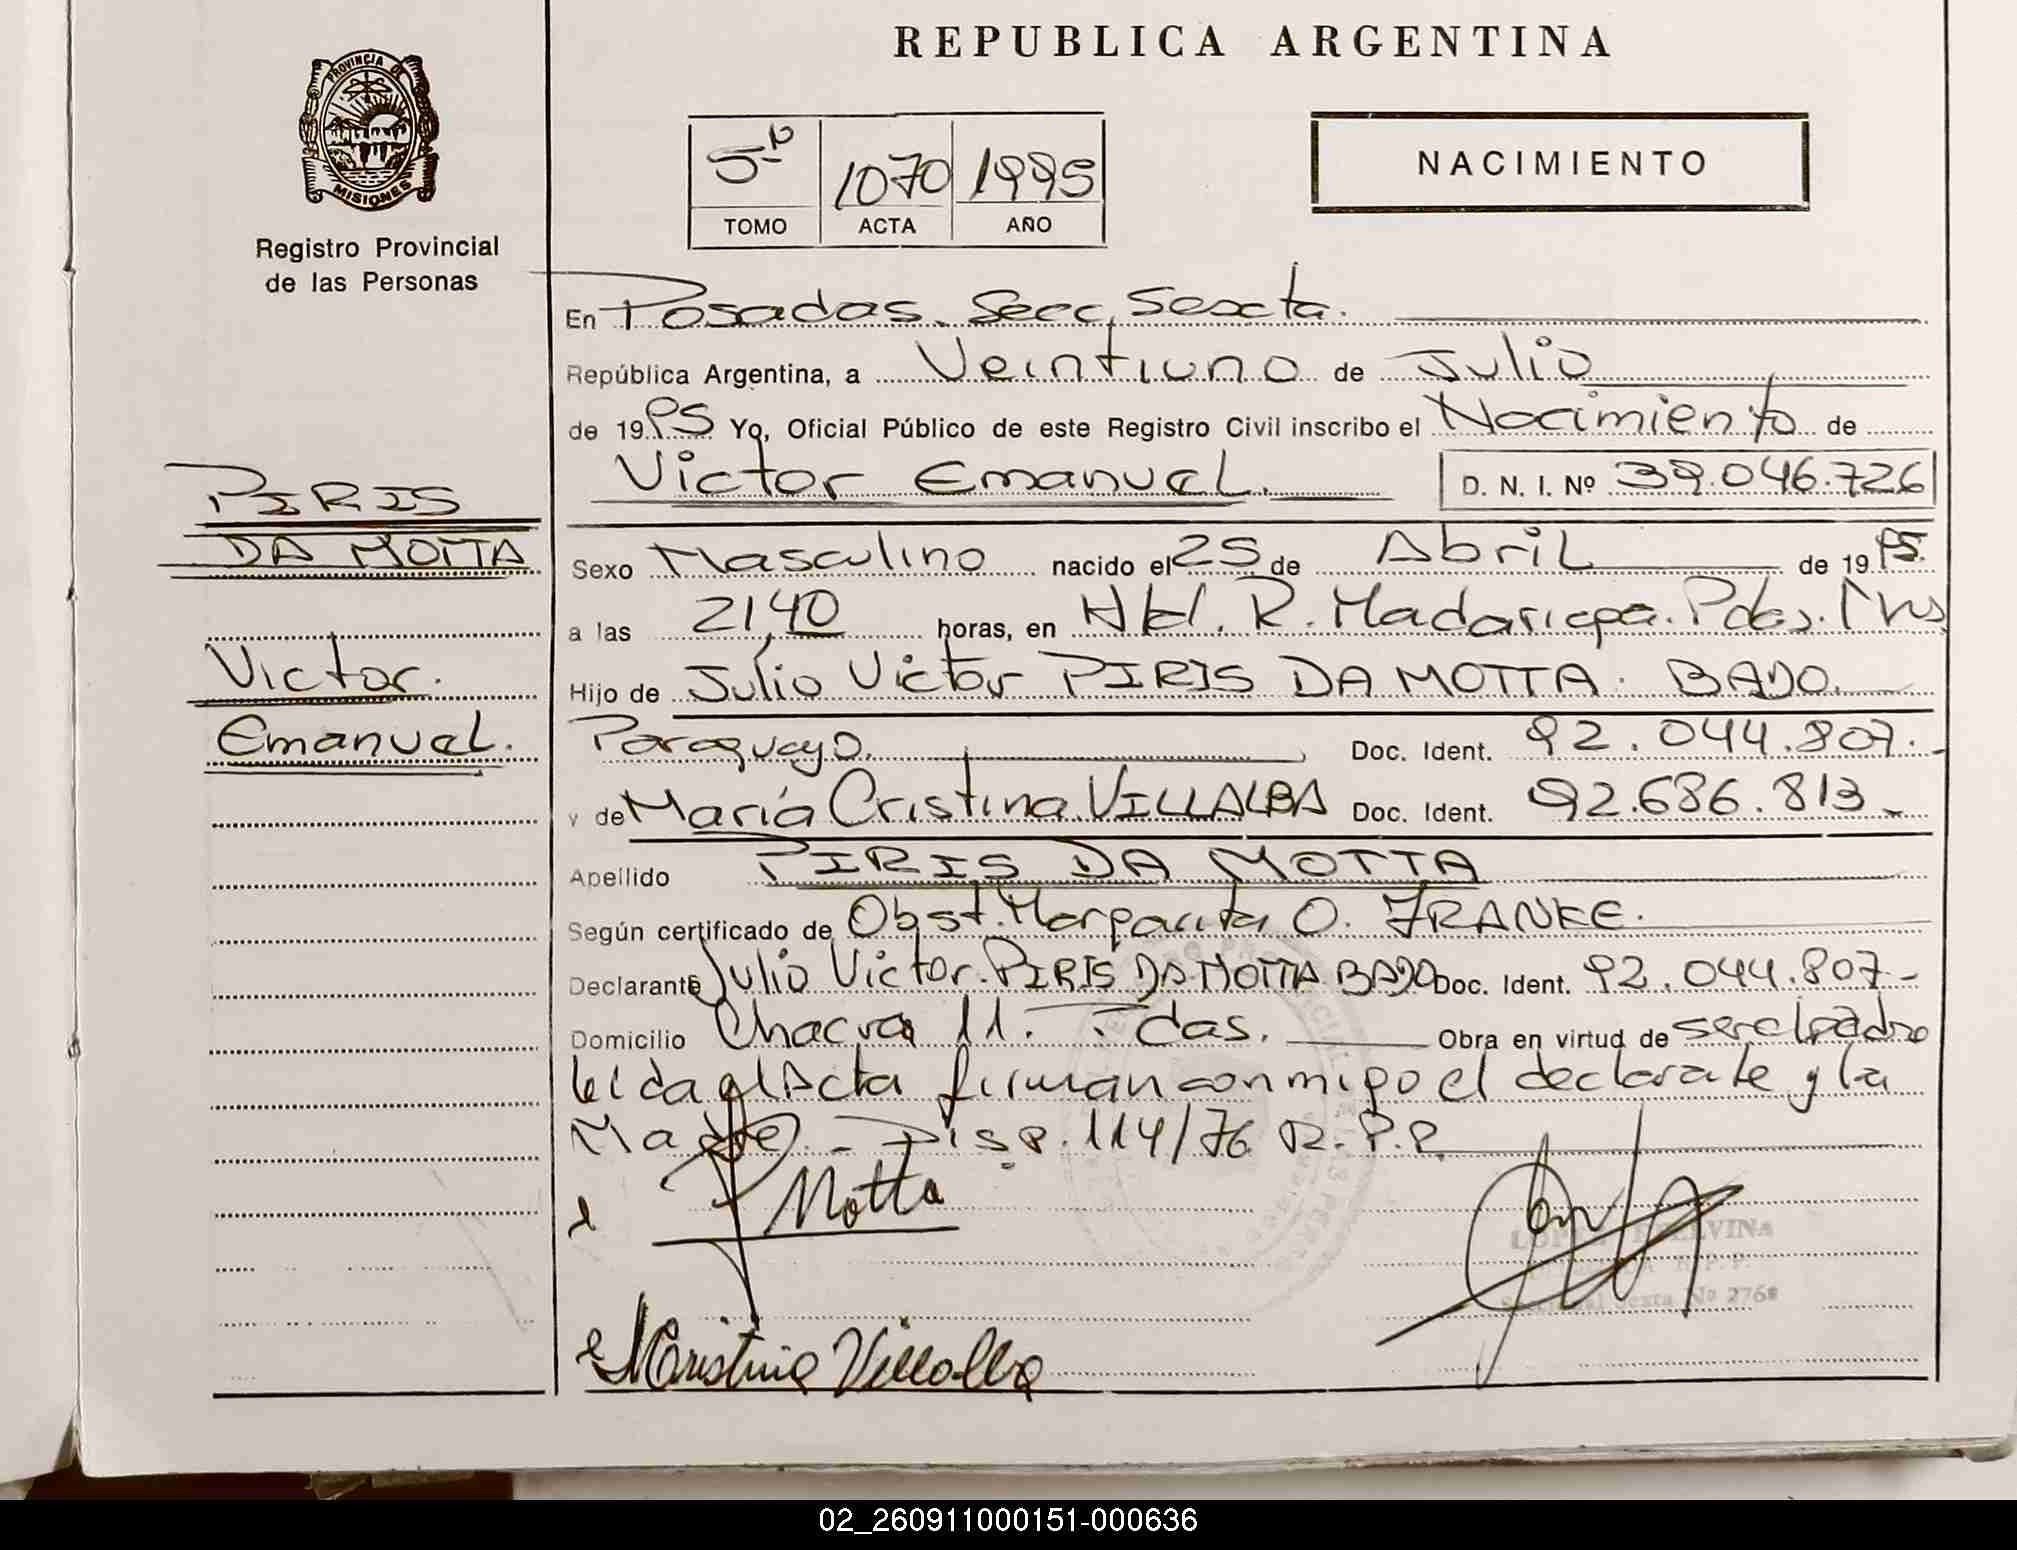 REPUBLICA ARGENTINA
PROVINCIA DE
MISIONES
Registro Provincial
de las Personas
5º 1070 1995
TOMO ACTA AÑO
NACIMIENTO
En Posadas. Secc. Sexta.
República Argentina, a Veintiuno de Julio
de 1995 Yo, Oficial Público de este Registro Civil inscribo el Nacimiento de
Victor Emanuel. D. N. I. Nº 39.046.726
PIRIS
DA MOTTA
Victor.
Emanuel.
Sexo Masculino nacido el 25 de Abril de 1995.
a las 21,40 horas, en Htal. R. Madariaga. Pdas. Mns
Hijo de Julio Victor PIRIS DA MOTTA. BADO.
Paraguayo. Doc. Ident. 92.044.807.-
y de María Cristina VILLALBA Doc. Ident. 92.686.813-
Apellido PIRIS DA MOTTA
Según certificado de Obst. Margarita O. FRANKE.
Declarante Julio Victor. PIRIS DA MOTTA BADO Doc. Ident. 92.044.807-
Domicilio Chacra 11. Pdas. Obra en virtud de ser el padre
leida el Acta firman conmigo el declarate y la
Madre. - Disp. 114/76 R.P.P.
Motta
LOPEZ ELVINA
R.P.P.
Sexta Nº 2768
M Cristina Villalba
02_260911000151-000636